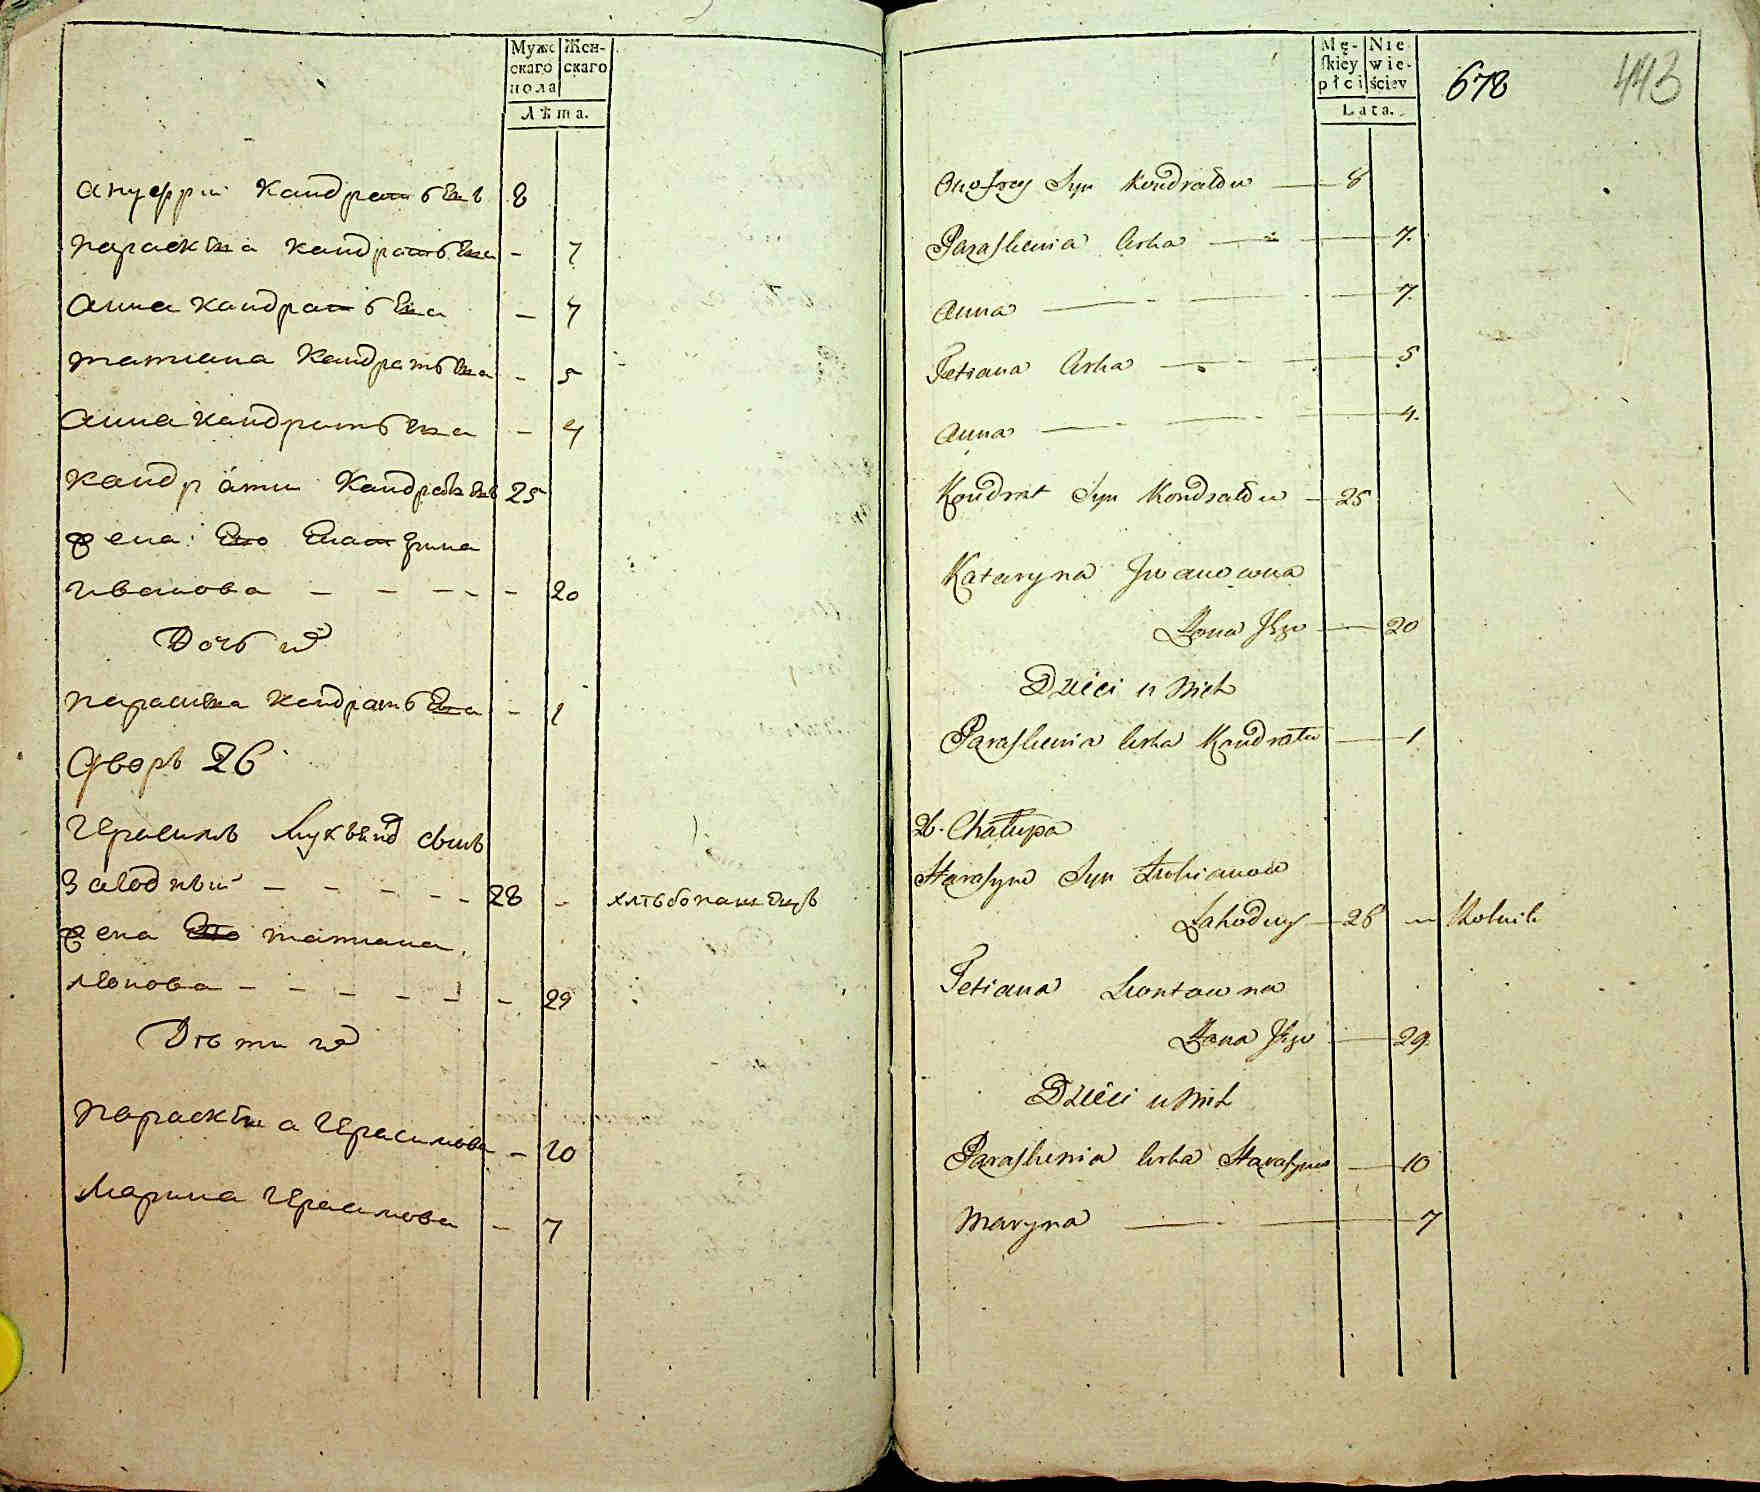 Муже
скаго
пола
Жен-
скаго
Лѣта.
Ануфрии Кандратьевъ 8
параскѣва Кандратьева - 7
Анна Кандратьева - 7
татиана Кандратьева - 5
Анна Кандратьева - 4
Кандрати Кандратьевъ 25
жена Его Екатерина
Иванова - - - - - 20
Дочь их
параскева Кандратьева - 1
Дворъ 26
Герасимъ сынъ
Загодный - - - - - 28 - хлѣбопашецъ
жена Его татиана
леонова - - - - - - 29
Дѣти их
параскѣва Герасимова - 10
Марина Герасимова - 7
Mę-
skiey
płci
Nie
wie-
ściey
Lata.
678
443
Onofrey Syn Kondratów — 8
Paraskewia Córka — 7.
Anna — 7.
Tetiana Córka — 5
Anna — 4.
Kondrat Syn Kondratów — 25
Kataryna Iwanowna
Żona Jego — 20
Dzieci u Nich
Paraskewia Córka Kondrata — 1
26. Chałupa
Harasym Syn
Zahodny — 28 — Rolnik
Tetiana Leontowna
Żona Jego — 29.
Dzieci u Nich
Paraskewia Córka Harasyma — 10
Maryna — 7